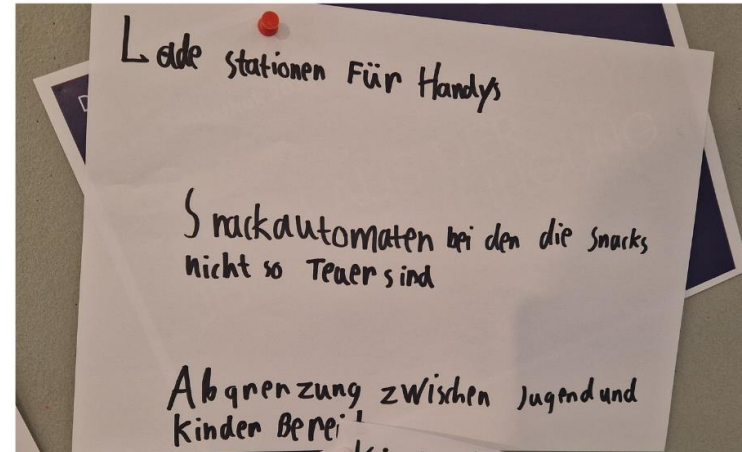 Lade stationen Für Handys
Snackautomaten bei den die Snacks
nicht so Teuer sind
Abgrenzung zwischen Jugend und
Kinder